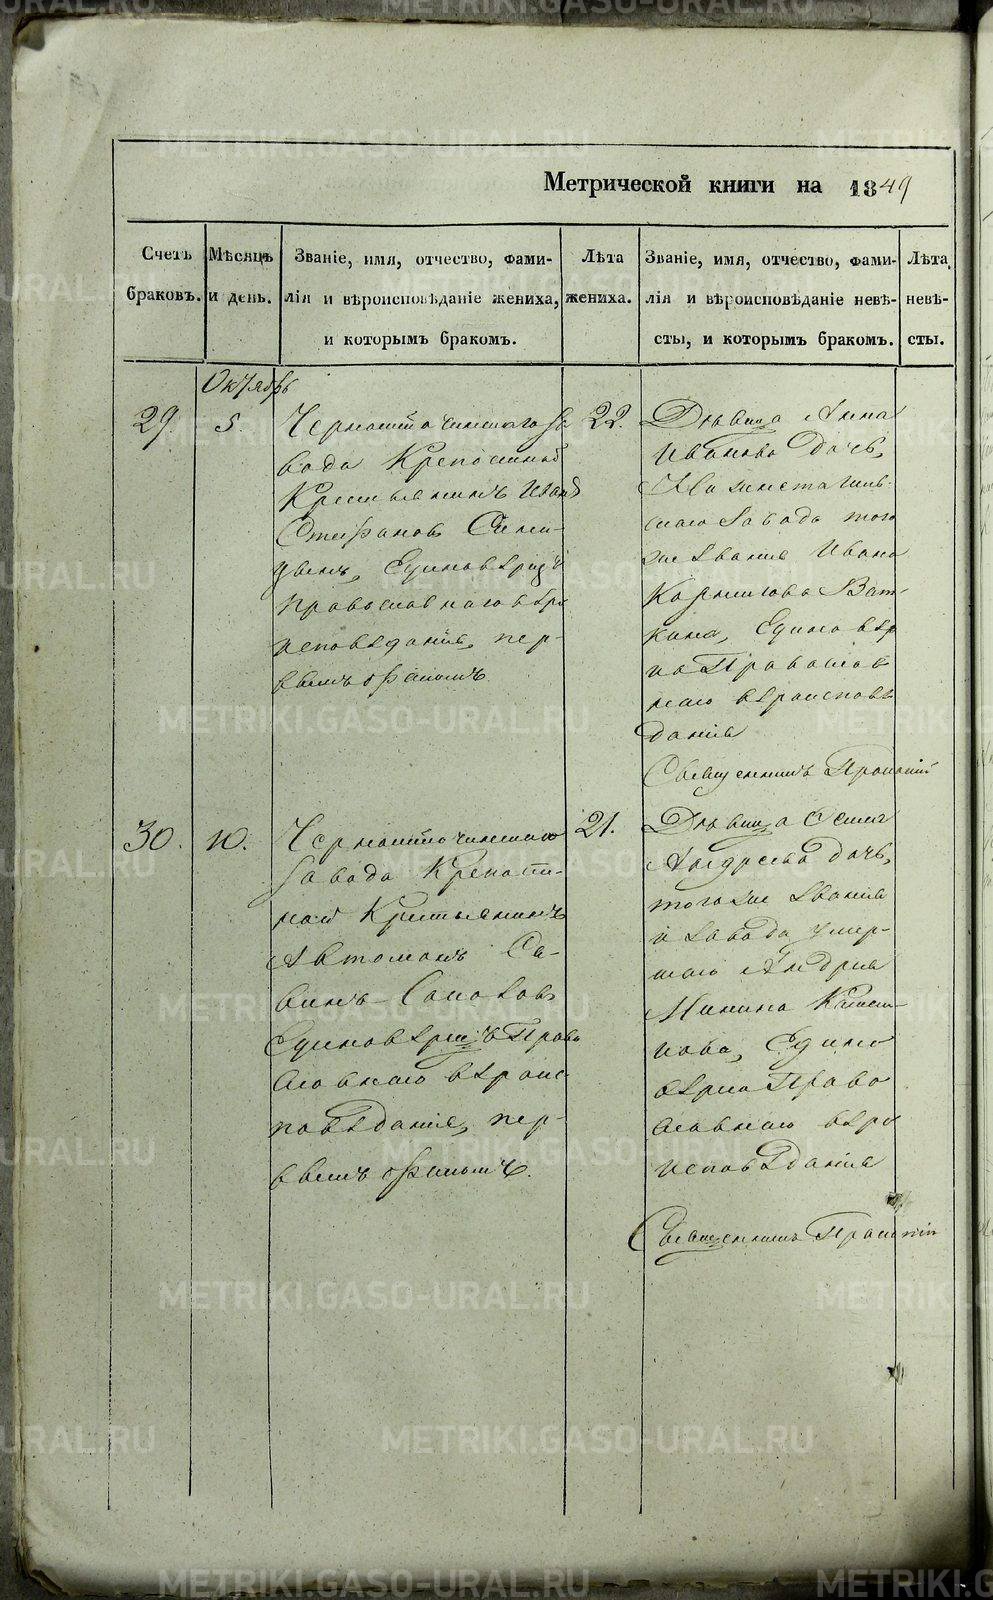 Метрической книги на 1849
Счетъ браковъ.
Мѣсяцъ и день.
Званіе, имя, отчество, фами-
лія и вѣроисповѣданіе жениха,
и которымъ бракомъ.
Лѣта
жениха.
Званіе, имя, отчество, фами-
лія и вѣроисповѣданіе невѣ-
сты, и которымъ бракомъ.
Лѣта
невѣ-
сты.
Октябрь
29
5.
Черноисточинскаго За
вода Крепосной
Крестьянинъ Иванъ
Стефановъ
Единовѣрецъ
православнаго вѣро
исповѣданія, пер-
вымъ бракомъ
22.
Дѣвица Анна
Иванова дочь,
Нижнетагиль-
скаго Завода того
же званія Ивана
Ват-
кина, Единовѣр
ко Православ
наго вѣроисповѣ
данія
Священникъ
30.
10.
Черноисточинскаго
Завода Крепост-
ной Крестьянинъ
Автомонъ Са-
винъ Созоновъ
Единовѣрецъ Право
славнаго вѣроис-
повѣданія, пер-
вымъ бракомъ.
21.
Дѣвица
Андреева дочь,
того же званія
и завода умер-
шаго Андрея
Минина
Едино
вѣрко Право
славнаго вѣро
исповѣданія
Священникъ
METRIKI.GASO-URAL.RU